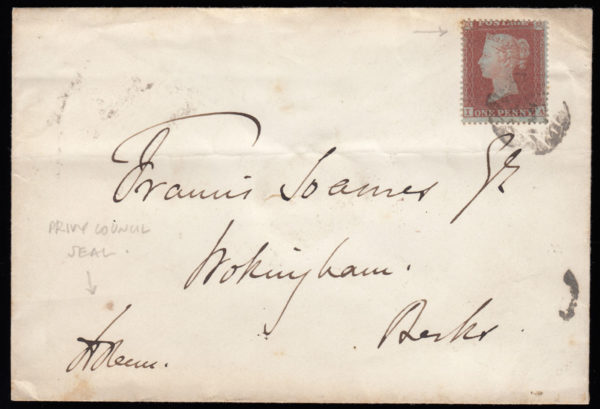 POSTAGE
ONE PENNY
Francis Soames Er
Wokingham.
PRIVY COUNCIL
SEAL.
Berks.